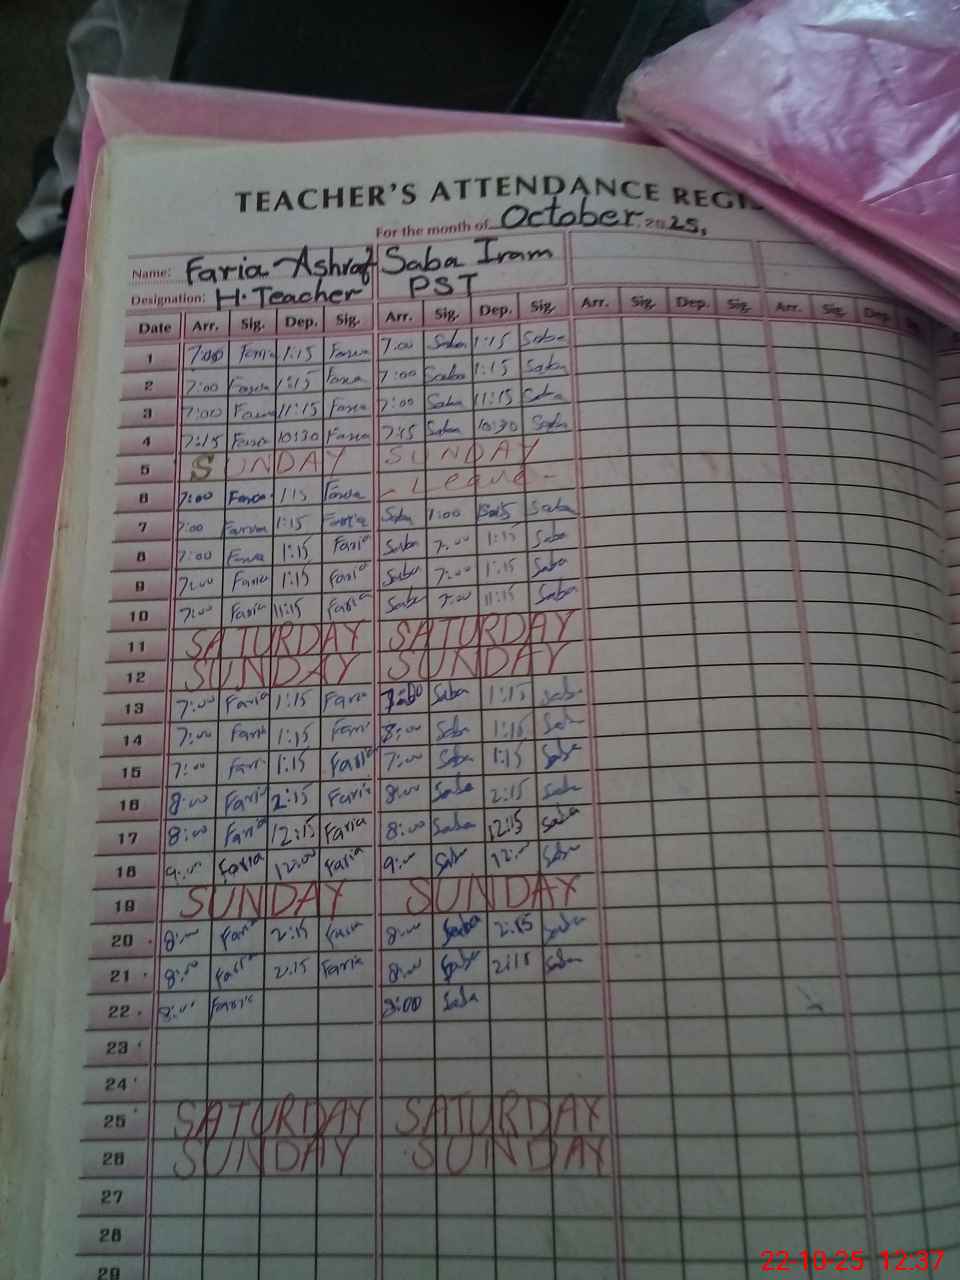 TEACHER'S ATTENDANCE REGIS
For the month of October 2025,
Name: Faria Ashraf Saba Iram
Designation: H.Teacher PST
Date Arr. Sig. Dep. Sig. Arr. Sig. Dep. Sig. Arr. Sig. Dep. Sig. Arr. Sig. Dep.
1 7:00 Faria 1:15 Faria 7:00 Saba 1:15 Saba
2 7:00 Faria 1:15 Faria 7:00 Saba 1:15 Saba
3 7:00 Faria 11:15 Faria 7:00 Saba 11:15 Saba
4 7:15 Faria 10:30 Faria 7:15 Saba 10:30 Saba
5 SUNDAY SUNDAY
6 7:00 Faria 1:15 Faria - Leave -
7 7:00 Faria 1:15 Faria Saba 7:00 Saba
8 7:00 Faria 1:15 Faria Saba 7:00 1:15 Saba
9 7:00 Faria 1:15 Faria Saba 7:00 1:15 Saba
10 7:00 Faria 11:15 Faria Saba 7:00 11:15 Saba
11 SATURDAY SATURDAY
12 SUNDAY SUNDAY
13 7:00 Faria 1:15 Faria Saba 1:15 Saba
14 7:00 Faria 1:15 Faria 8:00 Saba 1:15 Saba
15 7:00 Faria 1:15 Faria 7:00 Saba 1:15 Saba
16 8:00 Faria 2:15 Faria 8:00 Saba 2:15 Saba
17 8:00 Faria 12:15 Faria 8:00 Saba 12:15 Saba
18 9:00 Faria 12:00 Faria 9:00 Saba 12:00 Saba
19 SUNDAY SUNDAY
20 8:00 Faria 2:15 Faria 8:00 Saba 2:15 Saba
21 8:00 Faria 2:15 Faria 8:00 Saba 2:15 Saba
22 8:00 Faria 8:00 Saba
23
24
25 SATURDAY SATURDAY
26 SUNDAY SUNDAY
27
28
29
22-10-25 12:37